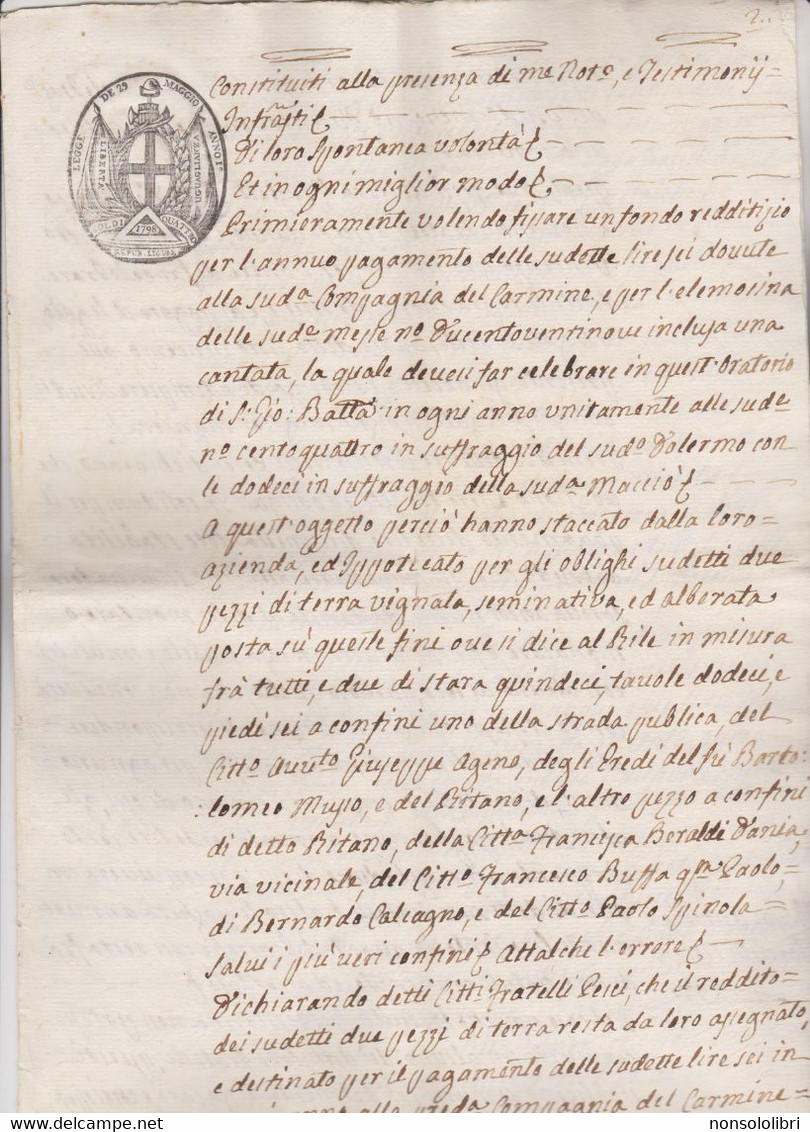 2..
LEGGE DE 29 MAGGIO ANNO I°
LIBERTÀ
UGUAGLIANZA
DI DI QUATTRO
1798
REPUB. LIGURE
Constituiti alla presenza di me Not.o, e Testimonij=
Infra.tti
Di loro spontanea volontà
Et in ogni miglior modo
Primieramente volendo fissare un fondo redditizio
per l'annuo pagamento delle sudette lire sei dovute
alla sud.a Compagnia del Carmine, e per l'elemosina
delle sud.e messe n.o Ducentoventinove inclusa una
cantata, la quale devesi far celebrare in quest'Oratorio
di S. Gio: Batta in ogni anno unitamente alle sud.e
n.o cento quattro in suffraggio del sud.o Dolermo con
le dodeci in suffraggio della sud.a Macciò
A quest'oggetto perciò hanno staccato dalla loro=
azienda, ed Ippotecato per gli oblighi sudetti due
pezzi di terra vignata, seminativa, ed alberata
posta sù queste fini ove si dice al Rile in misura
frà tutti, e due di stara quindeci, tavole dodeci, e
piedi sei a confini uno della strada publica, del
Citt.o Avv.to Giuseppe Ageno, degli Eredi del fù Barto:
:lomeo Musso, e del Ritano, e l'altro pezzo a confini
di detto Ritano, della Citt.a Francisca Beraldi D'ania,
via vicinale, del Citt.o Francesco Buffa q.m Paolo,
di Bernardo Calcagno, e del Citt.o Paolo Spinola=
Salvi i più veri confini Attalche l'errore
Dichiarando detti Citt.i Fratelli Pesci, che il reddito=
dei sudetti due pezzi di terra resta da loro assegnato,
e destinato per il pagamento delle sudette lire sei in
anno alla preda Compagnia del Carmine=
nonsololibri